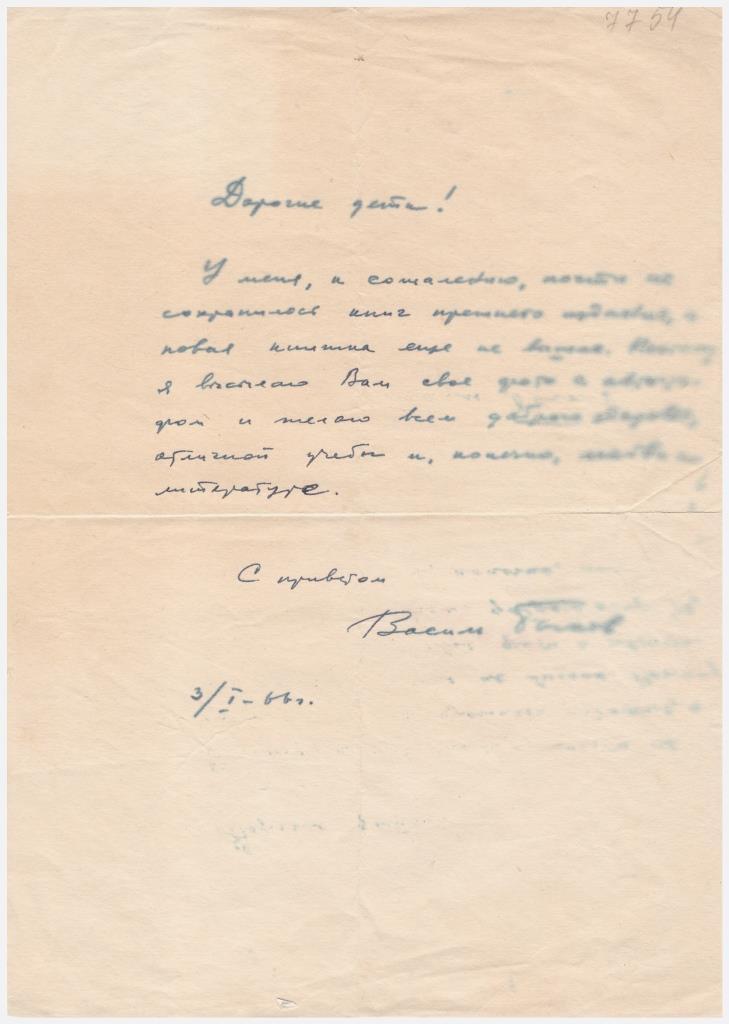 7754
Дорогие дети!
У меня, к сожалению, почти не
сохранилось книг прежнего издания, а
новая книжка еще не вышла. Поэтому
я высылаю Вам свое фото с автогра-
фом и желаю всем доброго здоровья,
отличной учебы и, конечно, любви к
литературе.
С приветом
Василь Быков
3/I-66г.